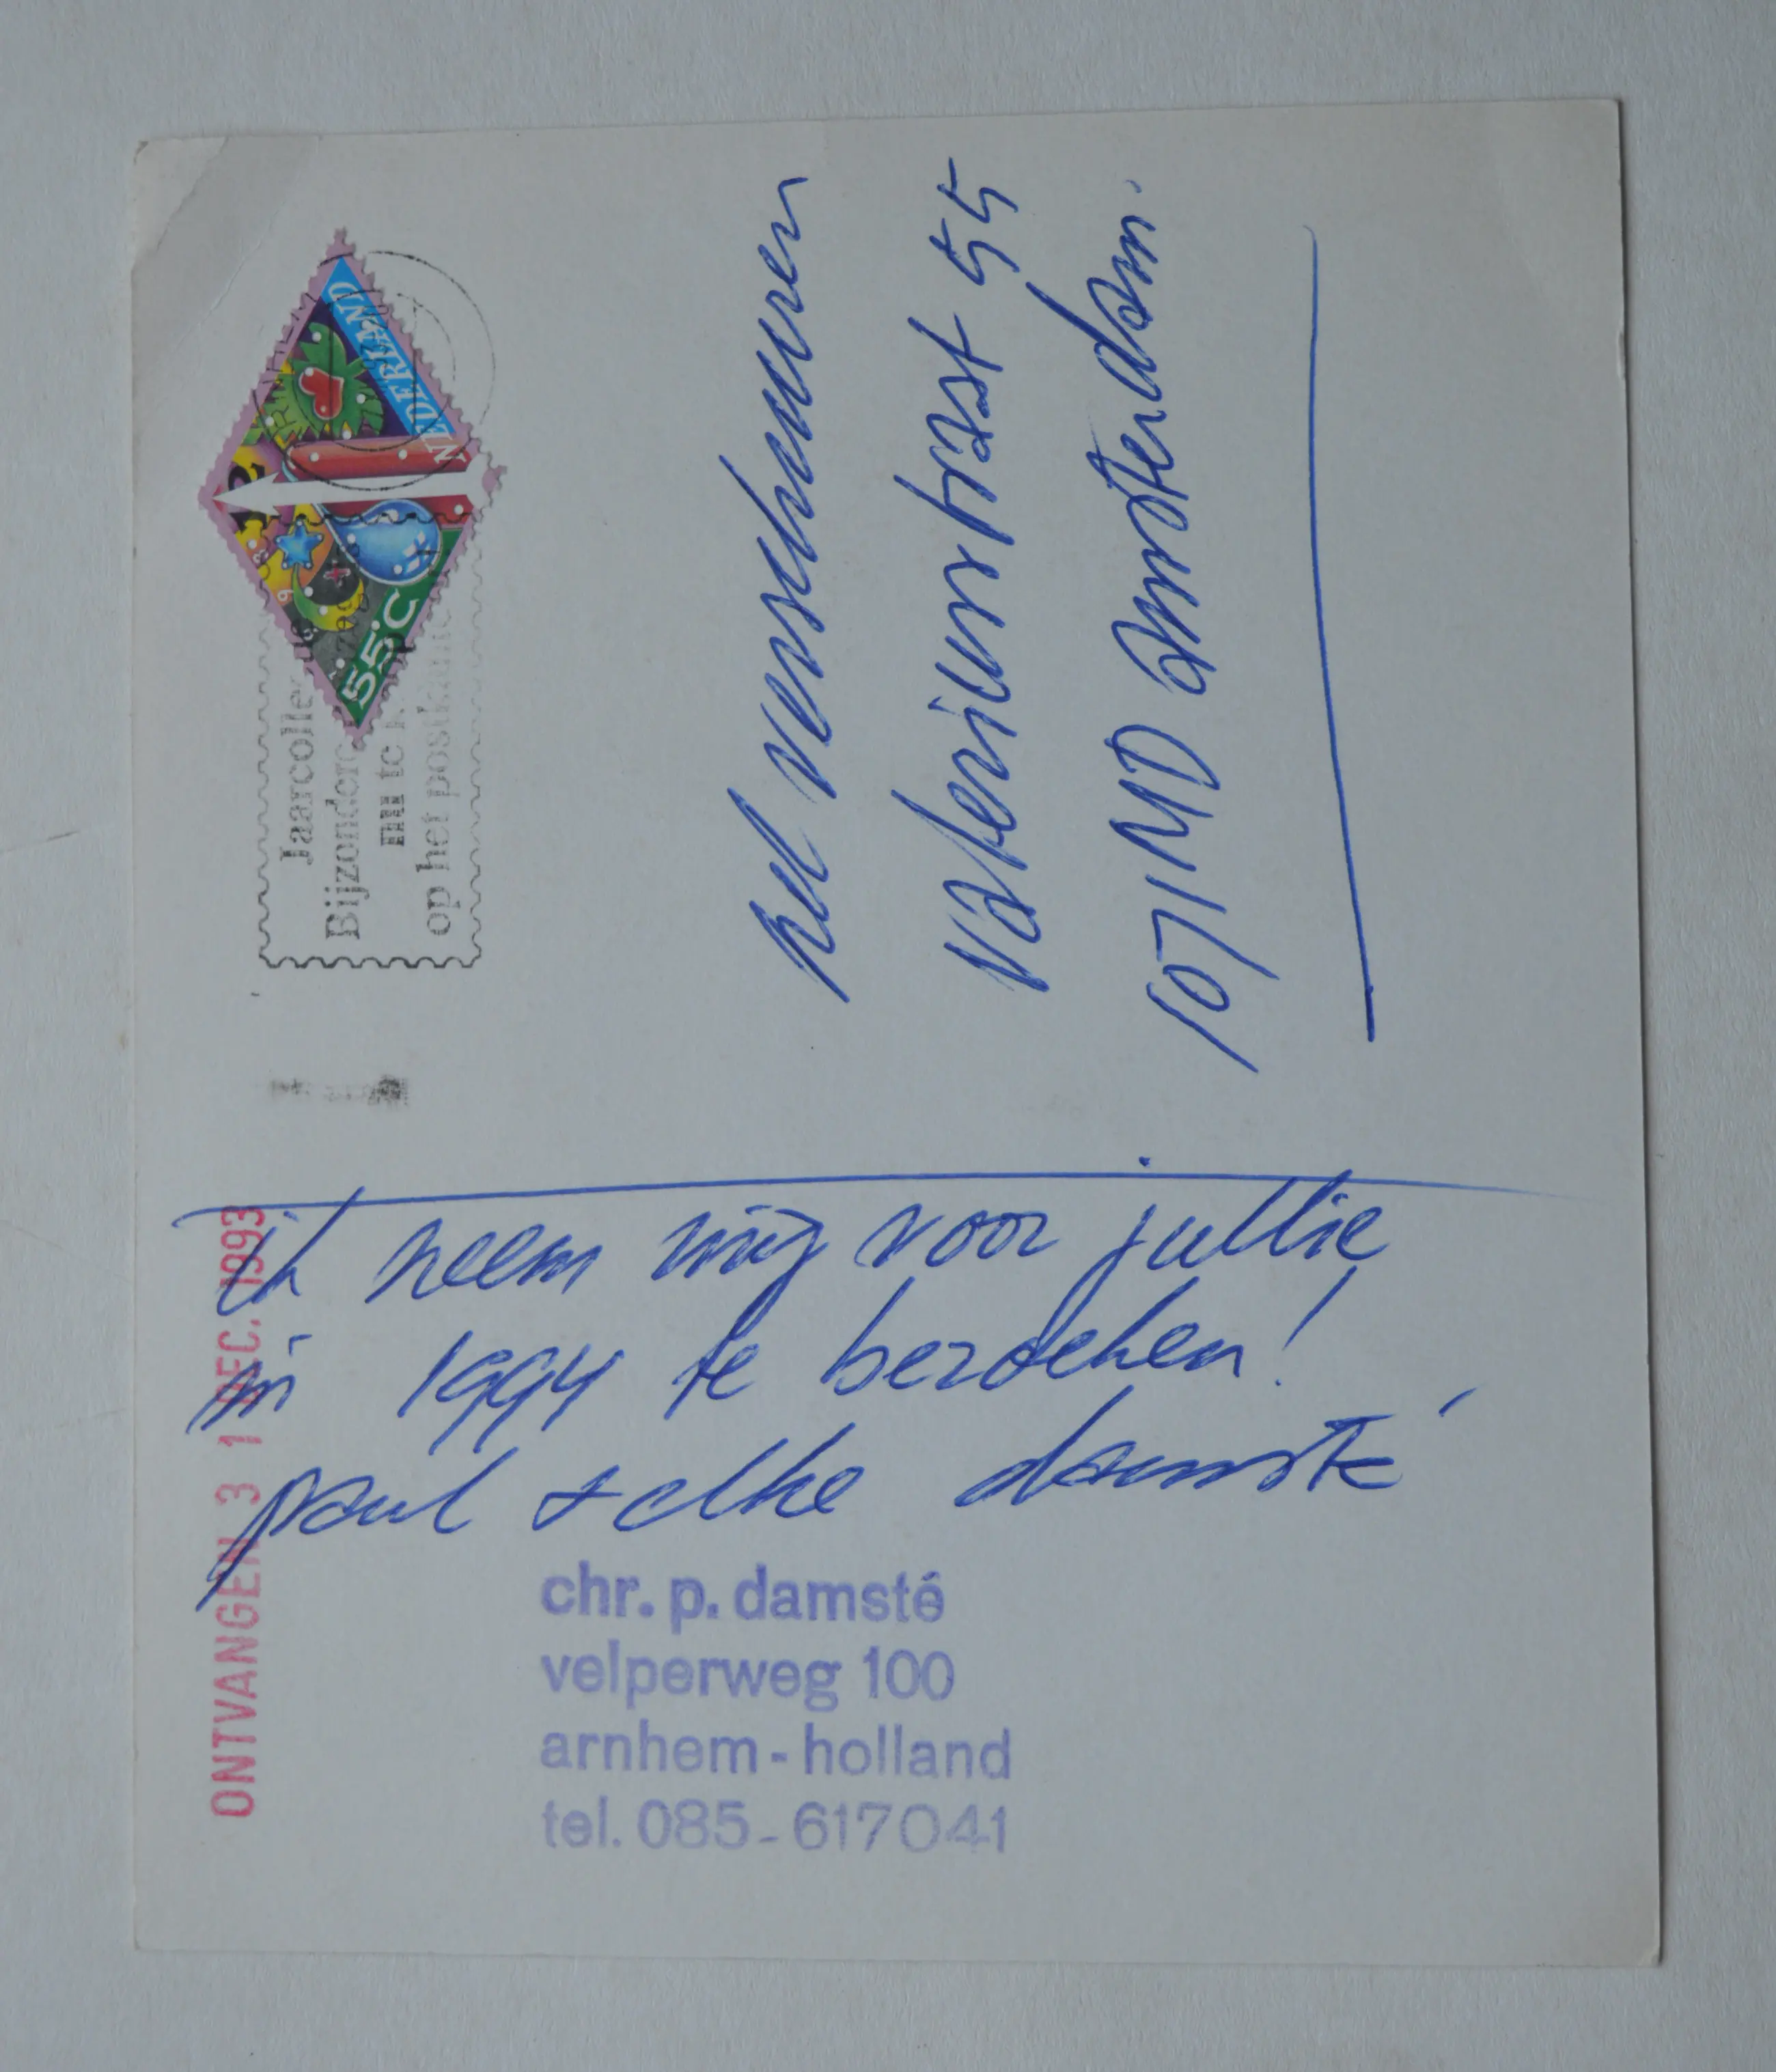 ik neem mij voor jullie
in 1994 te bezoeken!
paul + elke damsté
chr. p. damsté
velperweg 100
arnhem - holland
tel. 085-617041
ONTVANGEN 3 1 DEC. 1993
NEDERLAND
55c
Jaarcolle
Bijzondere
nu te
op het postkantoor
rul verschuuren
55
1071MD Amsterdam.